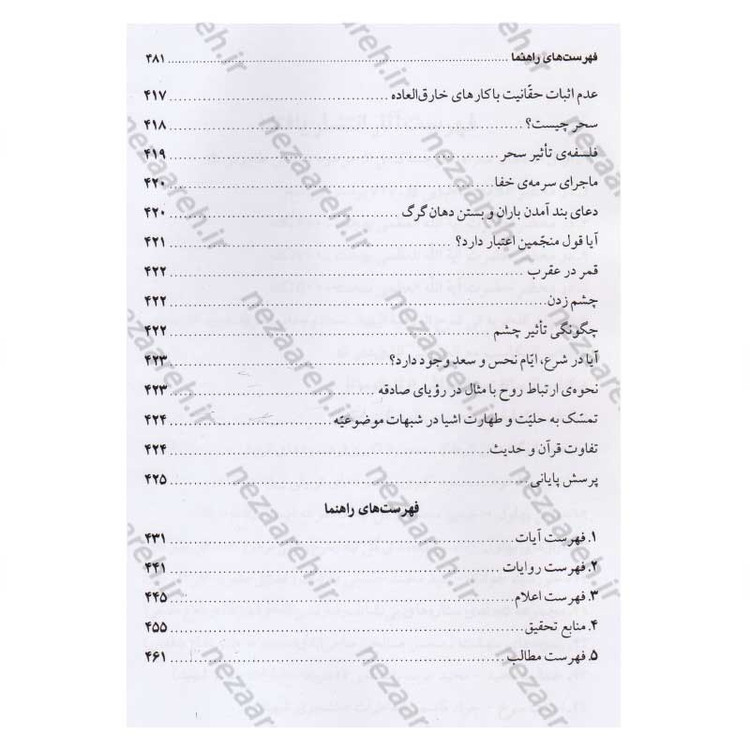 فهرست‌های راهنما ........ ۴۸۱
عدم اثبات حقّانیت با کارهای خارق‌العاده ........ ۴۱۷
سحر چیست؟ ........ ۴۱۸
فلسفه‌ی تأثیر سحر ........ ۴۱۹
ماجرای سرمه‌ی خفا ........ ۴۲۰
دعای بند آمدن باران و بستن دهان گرگ ........ ۴۲۰
آیا قول منجّمین اعتبار دارد؟ ........ ۴۲۱
قمر در عقرب ........ ۴۲۲
چشم زدن ........ ۴۲۲
چگونگی تأثیر چشم ........ ۴۲۲
آیا در شرع، ایّام نحس و سعد وجود دارد؟ ........ ۴۲۳
نحوه‌ی ارتباط روح با مثال در رؤیای صادقه ........ ۴۲۳
تمسّک به حلیّت و طهارت اشیا در شبهات موضوعیّه ........ ۴۲۴
تفاوت قرآن و حدیث ........ ۴۲۴
پرسش پایانی ........ ۴۲۵
فهرست‌های راهنما
۱. فهرست آیات ........ ۴۳۱
۲. فهرست روایات ........ ۴۴۱
۳. فهرست اعلام ........ ۴۴۵
۴. منابع تحقیق ........ ۴۵۵
۵. فهرست مطالب ........ ۴۶۱
nezaareh.ir